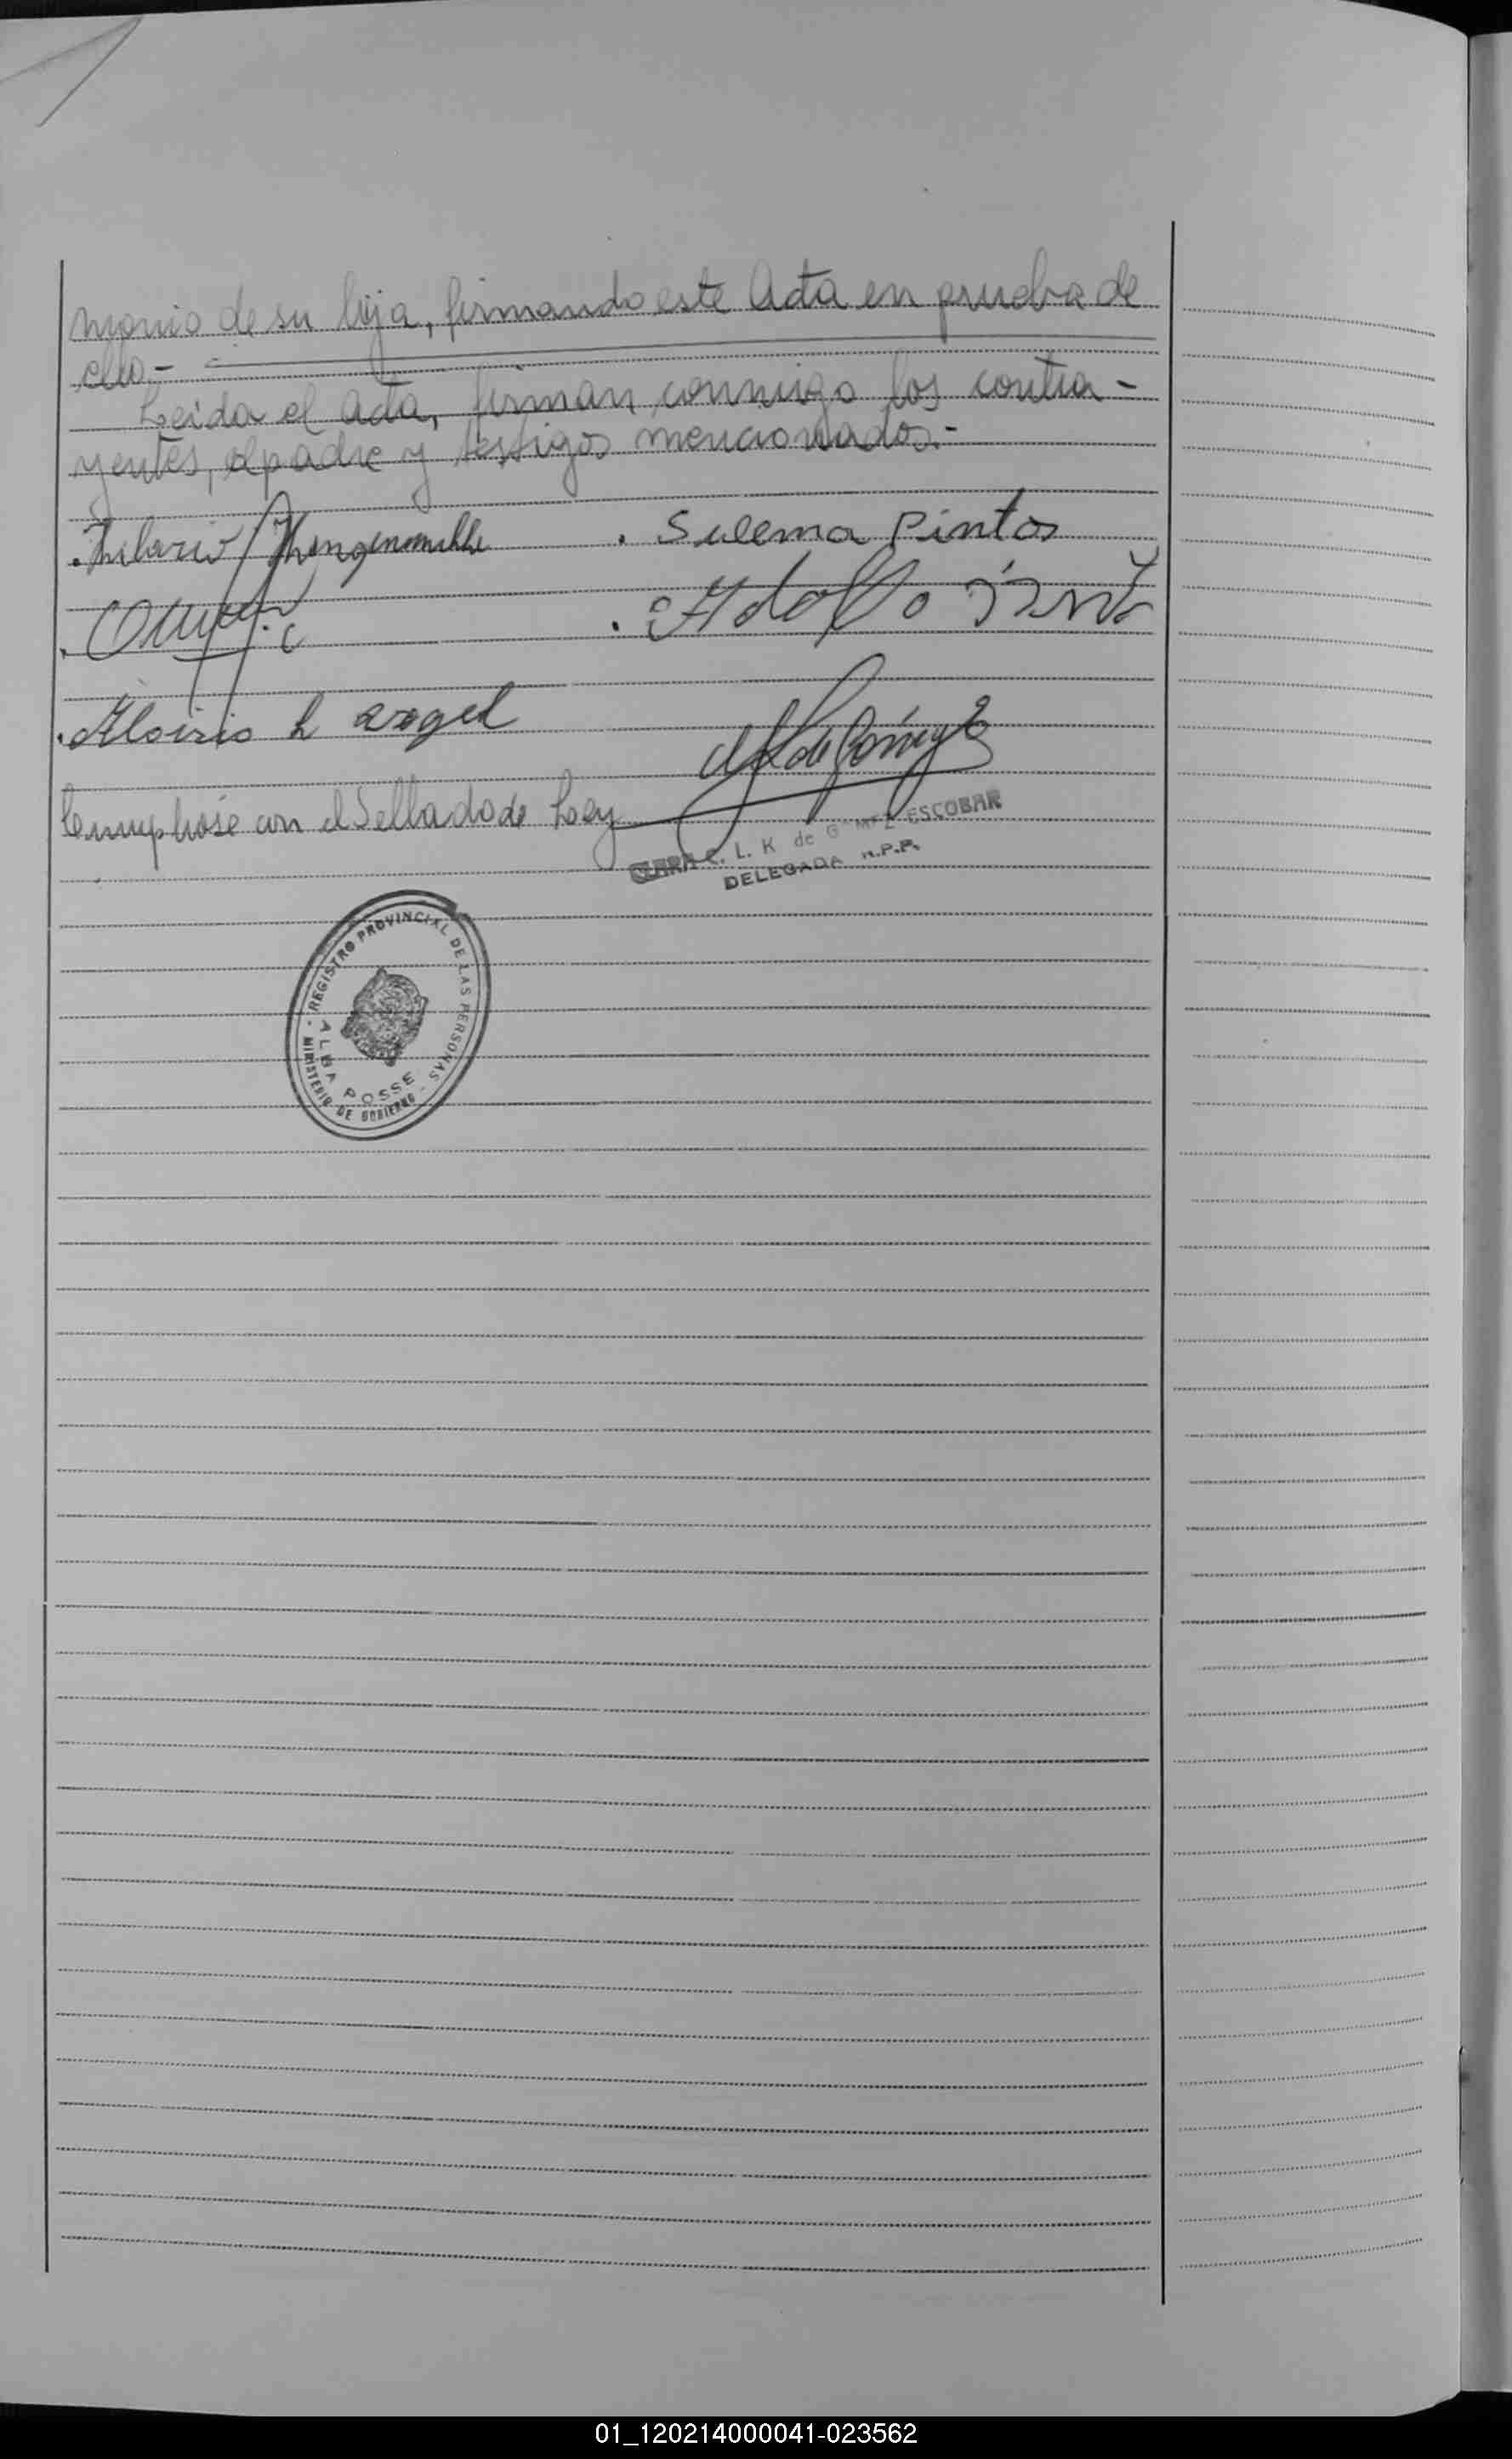 monio de su hija, firmando este Acta en prueba de
ello.-
Leída el Acta, firman conmigo los contra-
yentes, el padre y testigos mencionados.-
. Hilario
. Sulema Pintos
. Adolfo Pinto
. Aloisio L engel
Cumplióse con el Sellado de Ley
CLARA E. L. K de GOMEZ ESCOBAR
DELEGADA R.P.P.
REGISTRO PROVINCIAL DE LAS PERSONAS
ALBA POSSE
MINISTERIO DE GOBIERNO
01_120214000041-023562